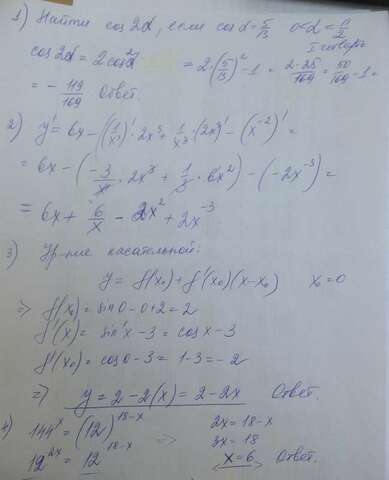 1) Найти cos2α, если cosα = 5/13 0<α<π/2
I четверть
cos2α = 2cos²α = 2·(5/13)² - 1 = 2·25/169 = 50/169 - 1 =
= - 119/169 Ответ.
2) y' = 6x - ((1/x³)' · 2x³ + 1/x³ · (2x³)' - (x⁻²)' =
= 6x - (-3/x⁴ · 2x³ + 1/3 · 6x²) - (-2x⁻³) =
= 6x + 6/x - 2x² + 2x⁻³.
3) Ур-ние касательной:
y = f(x₀) + f'(x₀)(x-x₀) x₀ = 0
=> f(x₀) = sin0 - 0 + 2 = 2
f'(x) = sin'x - 3 = cosx - 3
f'(x₀) = cos0 - 3 = 1 - 3 = - 2
=> y = 2 - 2(x) = 2 - 2x Ответ.
4) 144ˣ = (12)¹⁸⁻ˣ 2x = 18 - x
=> 3x = 18
12²ˣ = 12¹⁸⁻ˣ x = 6 Ответ.